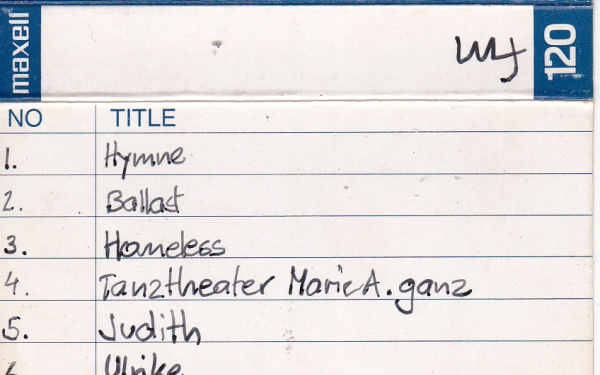 maxell
120
NO TITLE
1. Hymne
2. Ballast
3. Homeless
4. Tanztheater Marie A. ganz
5. Judith
Ulrike